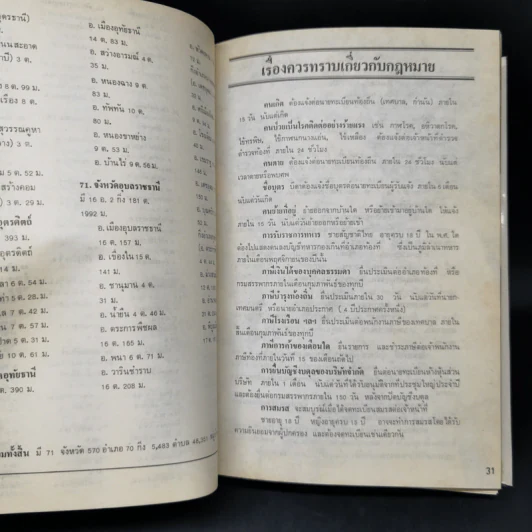 อุดรธานี)
ขนนสะอาด
านี) 3 ต.
8 ต. 99 ม.
เรือง 8 ต.
สุวรรณคูหา
) 3 ต.
ม 5 ต. 52 ม.
สว่างคอม
) 3 ต. 29 ม.
อุตรดิตถ์
393 ม.
อุตรดิตถ์
14 ม.
ลา 6 ต. 54 ม.
ท่า 5 ต. 28 ม.
7 ต. 42 ม.
น 7 ต. 57 ม.
ด 5 ต. 31 ม.
10 ต. 61 ม.
อุทัยธานี
ต. 390 ม.
อ. เมืองอุทัยธานี
14 ต. 83 ม.
อ. สว่างอารมณ์ 4 ต.
35 ม.
อ. หนองฉาง 9 ต.
83 ม.
อ. ทัพทัน 10 ต.
80 ม.
อ. หนองขาหย่าง
9 ต. 53 ม.
อ. บ้านไร่ 9 ต. 56 ม.
71. จังหวัดอุบลราชธานี
มี 16 อ. 2 กิ่ง 181 ต.
1992 ม.
อ. เมืองอุบลราชธานี
16 ต. 157 ม.
อ. เขื่องใน 15 ต.
141 ม.
อ. ชานุมาน 4 ต.
31 ม.
อ. น้ำยืน 4 ต. 46 ม.
อ. ตระการพืชผล
16 ต. 165 ม.
อ. พนา 6 ต. 71 ม.
อ. วารินชำราบ
16 ต. 208 ม.
มทั้งสิ้น มี 71 จังหวัด 570 อำเภอ 70 กิ่ง 5,483 ตำบล
เรื่องควรทราบเกี่ยวกับกฎหมาย
คนเกิด ต้องแจ้งต่อนายทะเบียนท้องถิ่น (เทศบาล, กำนัน) ภายใน
15 วัน นับแต่เกิด
คนป่วยเป็นโรคติดต่ออย่างร้ายแรง เช่น กาฬโรค, อหิวาตกโรค,
ไข้ทรพิษ, ไข้กาฬนกนางแอ่น, ไข้เหลือง ต้องแจ้งต่อเจ้าหน้าที่ตำรวจ
ตำรวจท้องที่ ภายใน 24 ชั่วโมง
คนตาย ต้องแจ้งต่อนายทะเบียนท้องถิ่น ภายใน 24 ชั่วโมง นับแต่
เวลาตายหรือพบศพ
ชื่อบุตร บิดาต้องแจ้งชื่อบุตรต่อนายทะเบียนผู้รับแจ้ง ภายใน 6 เดือน
นับแต่วันเกิด
คนย้ายที่อยู่ ย้ายออกจากบ้านใด หรือย้ายเข้ามาอยู่บ้านใด ให้แจ้ง
ภายใน 15 วัน นับแต่วันย้ายออกหรือย้ายเข้า
การรับราชการทหาร ชายสัญชาติไทย อายุครบ 18 ปี ใน พ.ศ. ใด
ต้องไปแสดงตนลงบัญชีทหารกองเกินที่อำเภอท้องที่ ซึ่งเป็นภูมิลำเนาทหาร
ภายในเดือนพฤศจิกายนของปีนั้น
ภาษีเงินได้ของบุคคลธรรมดา ยื่นประเมินต่ออำเภอท้องที่ หรือ
กรมสรรพากรภายในเดือนกุมภาพันธ์ของทุกปี
ภาษีบำรุงท้องถิ่น ยื่นประเมินภายใน 30 วัน นับแต่วันที่นายก-
เทศมนตรี หรือนายอำเภอประกาศ ( 4 ปีประกาศครั้งหนึ่ง)
ภาษีโรงเรือน ฯลฯ ยื่นประเมินต่อพนักงานภาษีของเทศบาล ภายใน
สิ้นเดือนกุมภาพันธ์ของทุกปี
ภาษีการค้าของเดือนใด ยื่นรายการ และชำระภาษีต่อเจ้าพนักงาน
ภาษีท้องที่ภายในวันที่ 15 ของเดือนถัดไป
การยื่นบัญชีงบดุลของบริษัทจำกัด ยื่นต่อนายทะเบียนห้างหุ้นส่วน
บริษัท ภายใน 1 เดือน นับแต่วันที่ได้รับอนุมัติจากที่ประชุมใหญ่ประจำปี
และต้องยื่นต่อกรมสรรพากรภายใน 150 วัน หลังจากปิดบัญชีงบดุล
การสมรส จะสมบูรณ์เมื่อได้จดทะเบียนสมรสต่อเจ้าหน้าที่
ชายอายุครบ 18 ปี หญิงอายุครบ 15 ปี อาจจะทำการสมรสโดยได้รับ
ความยินยอมจากผู้ปกครอง และต้องจดทะเบียนเช่นเดียวกัน
31